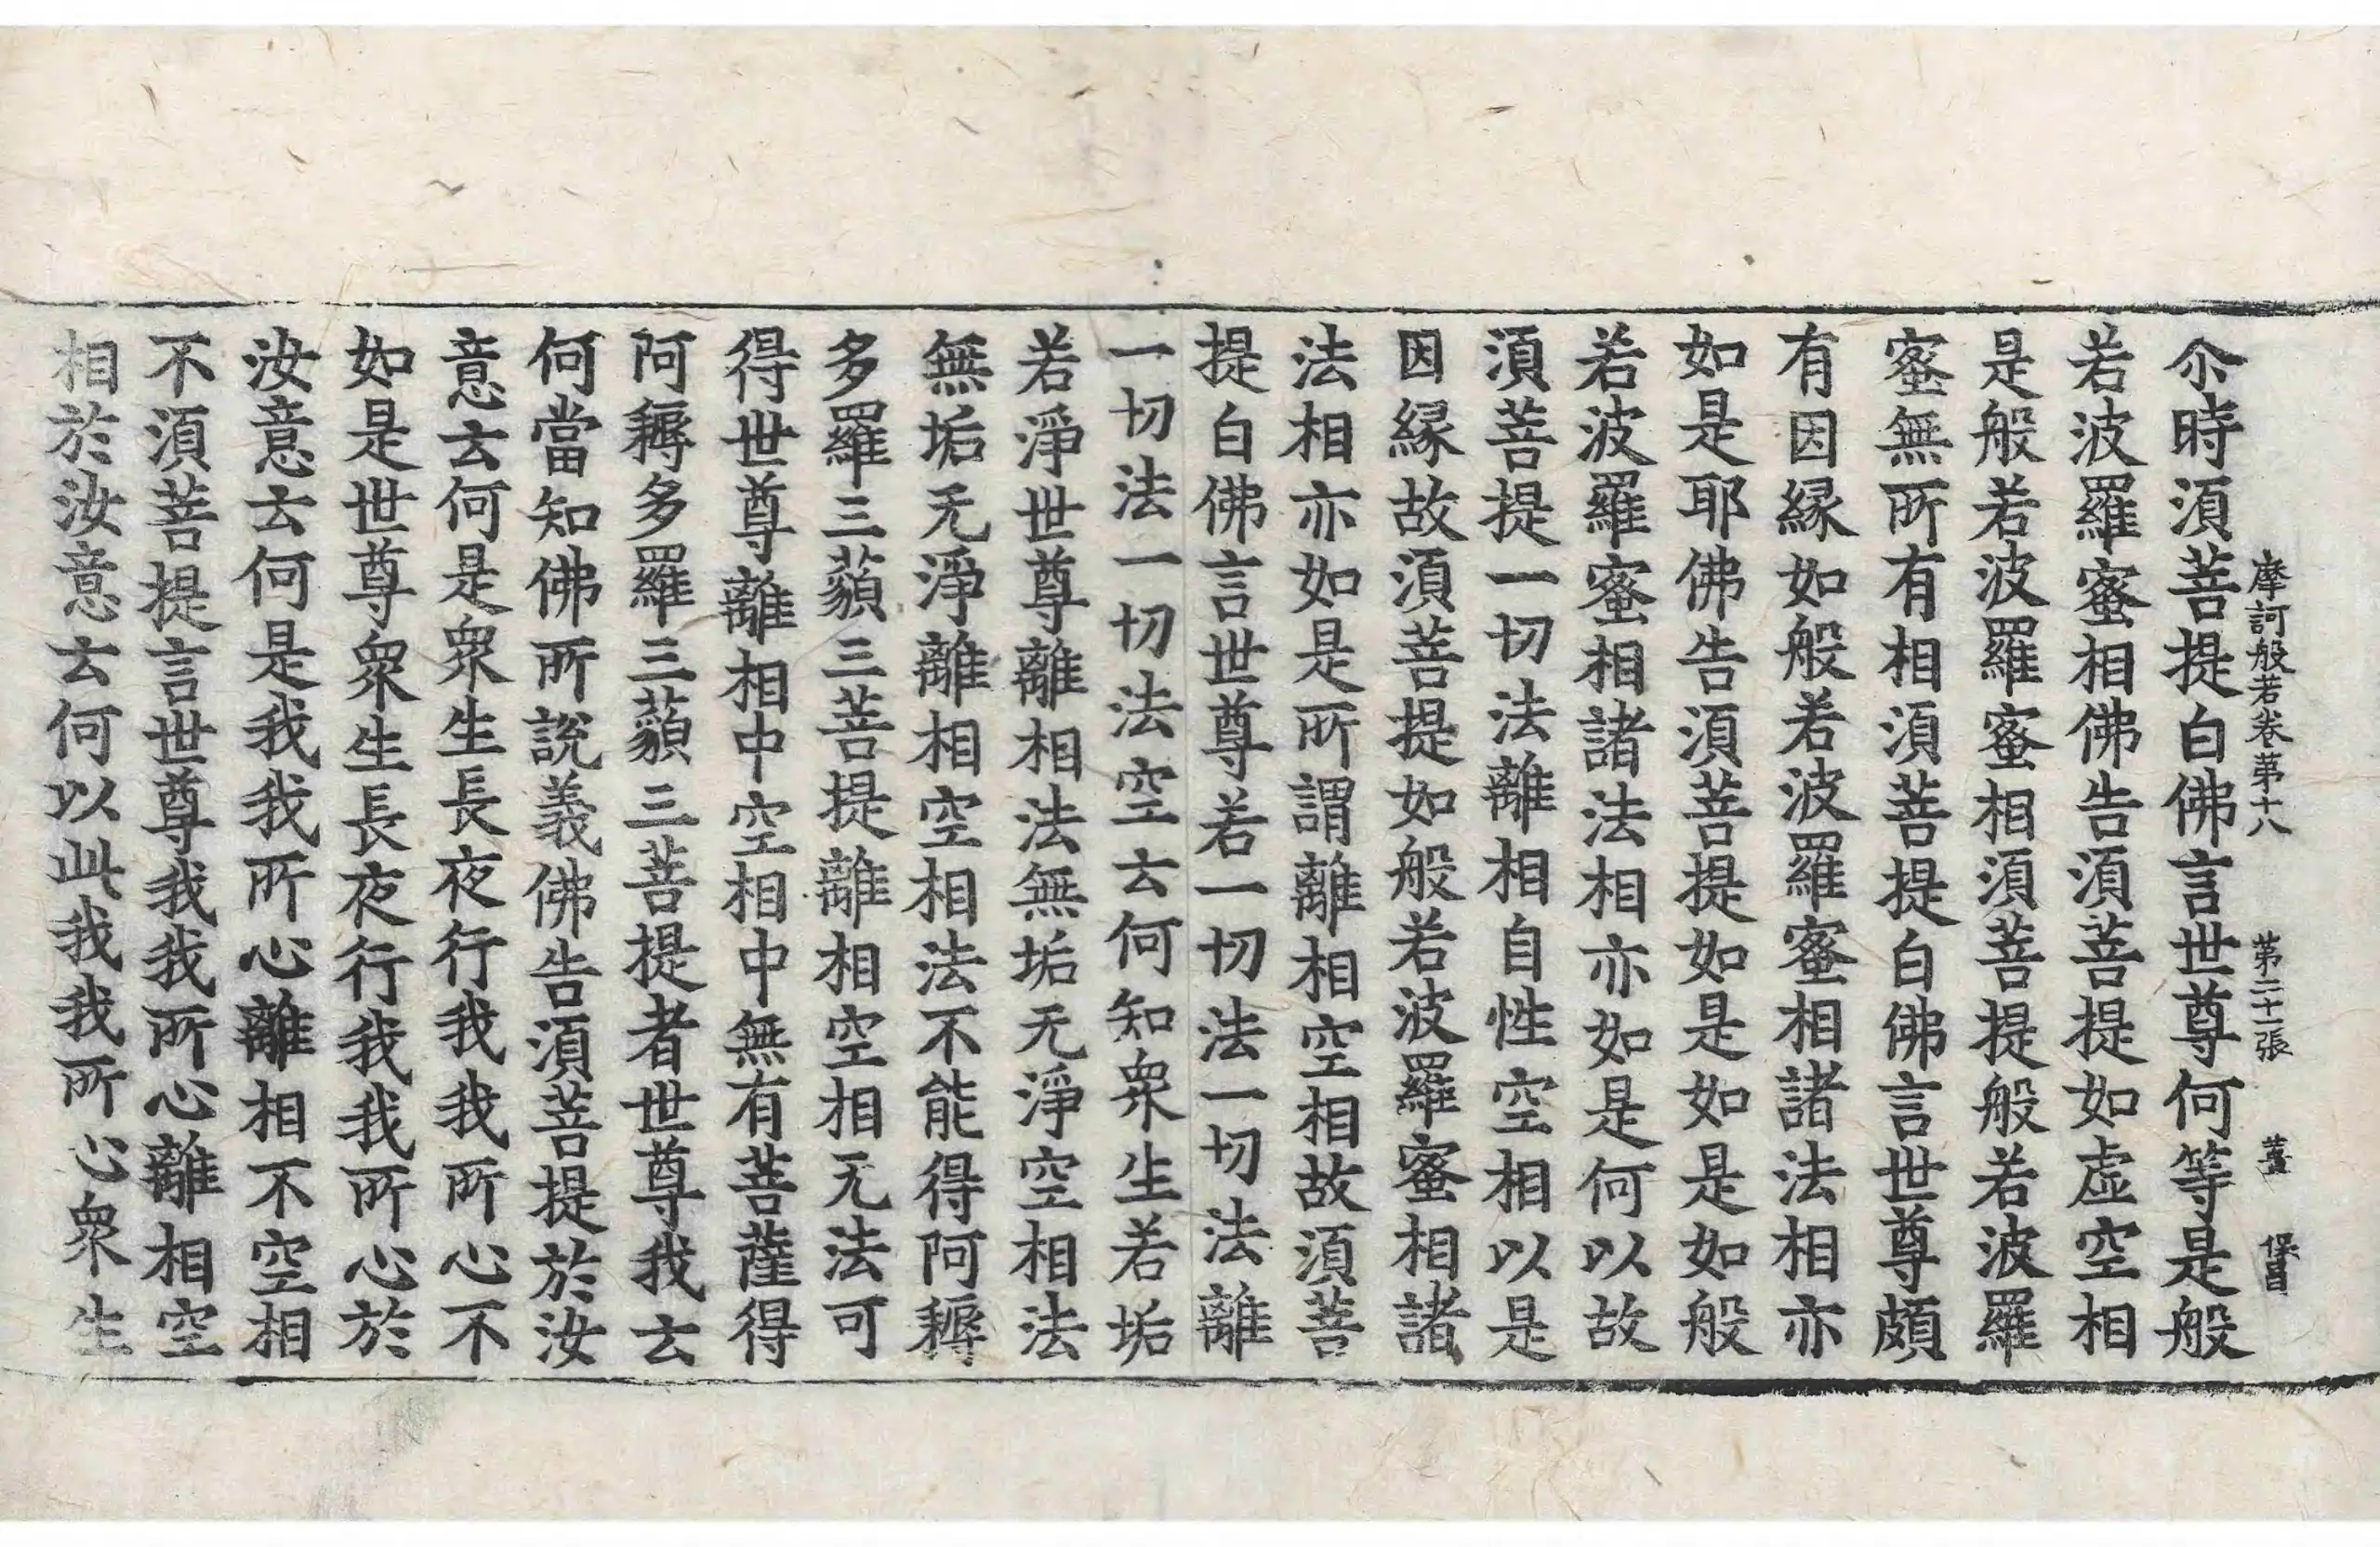 摩訶般若卷第十八 第二十一張 薑 保昌
尒時須菩提白佛言世尊何等是般
若波羅蜜相佛告須菩提如虛空相
是般若波羅蜜相須菩提般若波羅
蜜無所有相須菩提白佛言世尊頗
有因縁如般若波羅蜜相諸法相亦
如是耶佛告須菩提如是如是如般
若波羅蜜相諸法相亦如是何以故
須菩提一切法離相自性空相以是
因縁故須菩提如般若波羅蜜相諸
法相亦如是所謂離相空相故須菩
提白佛言世尊若一切法一切法離
一切法一切法空云何知衆生若垢
若淨世尊離相法無垢无淨空相法
無垢无淨離相空相法不能得阿耨
多羅三藐三菩提離相空相无法可
得世尊離相中空相中無有菩薩得
阿耨多羅三藐三菩提者世尊我云
何當知佛所說義佛告須菩提於汝
意云何是衆生長夜行我我所心不
如是世尊衆生長夜行我我所心於
汝意云何是我我所心離相不空相
不須菩提言世尊我我所心離相空
相於汝意云何以此我我所心衆生